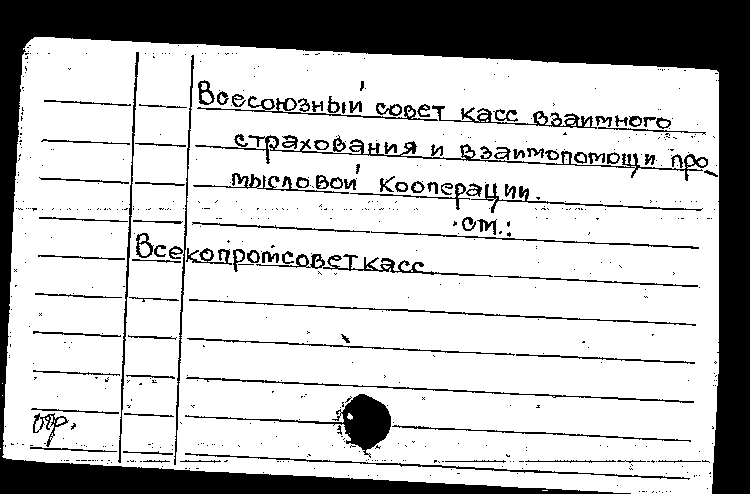 Всесоюзный совет касс взаимного
страхования и взаимопомощи про-
мысловой кооперации.
см.:
Всекопромсоветкасс